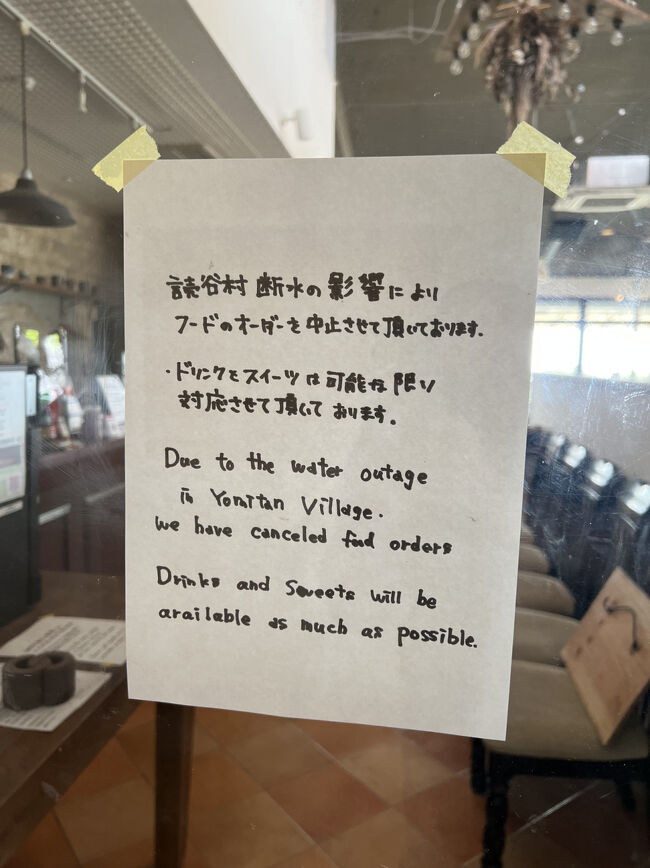 読谷村 断水の影響により
フードのオーダーを中止させて頂いております。
・ドリンクとスイーツは可能な限り
対応させて頂いて おります。
Due to the water outage
in Yomitan Village.
we have canceled food orders
Drinks and Sweets will be
available as much as possible.